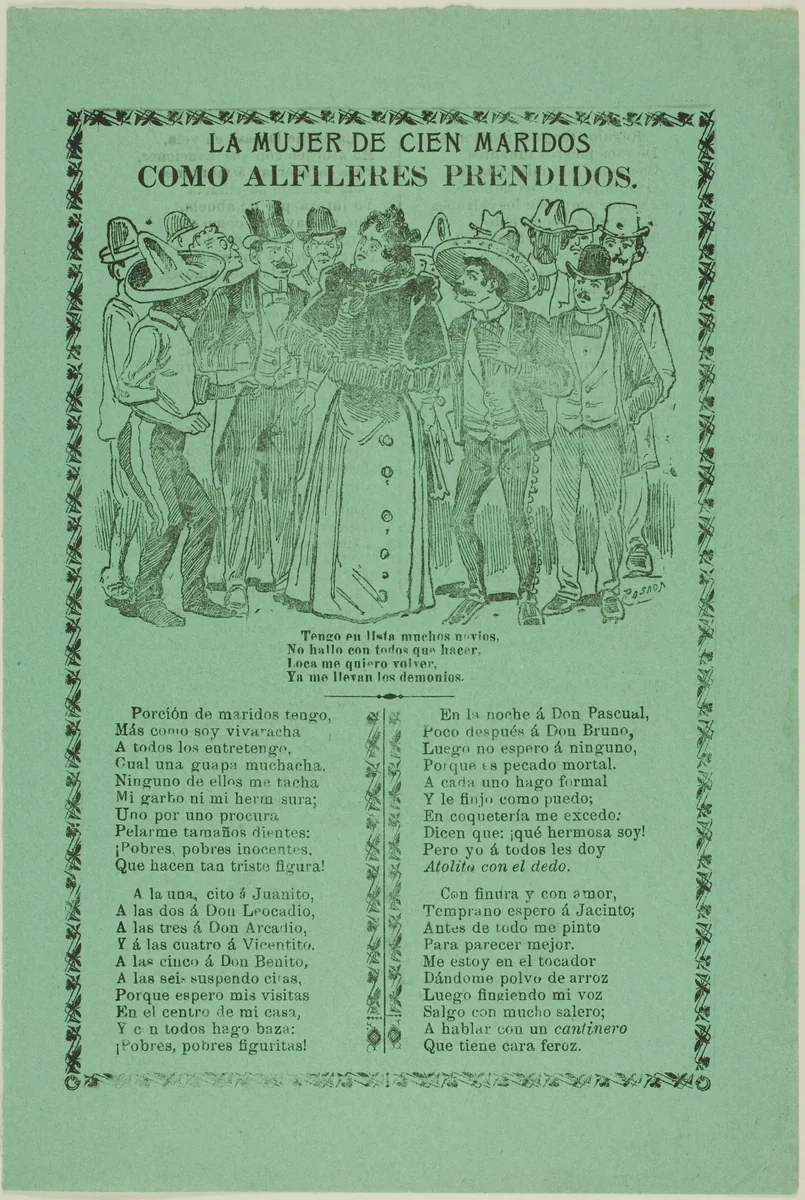 LA MUJER DE CIEN MARIDOS
COMO ALFILERES PRENDIDOS.
POSADA
Tengo en lista muchos novios,
No hallo con todos que hacer,
Loca me quiero volver,
Ya me llevan los demonios.
Porción de maridos tengo,
Más como soy vivaracha
A todos los entretengo,
Cual una guapa muchacha,
Ninguno de ellos me tacha
Mi garbo ni mi hermosura;
Uno por uno procura
Pelarme tamaños dientes:
¡Pobres, pobres inocentes,
Que hacen tan triste figura!
A la una, cito á Juanito,
A las dos á Don Leocadio,
A las tres á Don Arcadio,
Y á las cuatro á Vicentito.
A las cinco á Don Benito,
A las seis suspendo citas,
Porque espero mis visitas
En el centro de mi casa,
Y con todos hago baza:
¡Pobres, pobres figuritas!
En la noche á Don Pascual,
Poco después á Don Bruno,
Luego no espero á ninguno,
Porque es pecado mortal.
A cada uno hago formal
Y le finjo como puedo;
En coquetería me excedo:
Dicen que: ¡qué hermosa soy!
Pero yo á todos les doy
Atolito con el dedo.
Con finura y con amor,
Temprano espero á Jacinto;
Antes de todo me pinto
Para parecer mejor.
Me estoy en el tocador
Dándome polvo de arroz
Luego fingiendo mi voz
Salgo con mucho salero;
A hablar con un cantinero
Que tiene cara feroz.